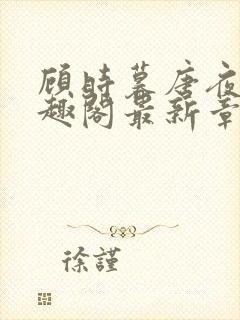 顾时暮唐夜
趣阁最新章
徐謹